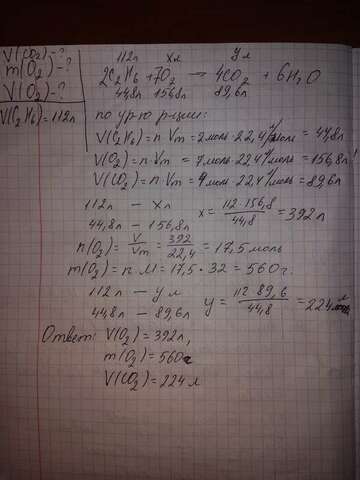 V(CO2)-?
m(O2)-?
V(O2)-?
V(C2H6)=112л
112л хл ул
2C2H6+7O2 → 4CO2 + 6H2O
44,8л 156,8л 89,6л
по ур-ю р-ции:
V(C2H6)=n·Vm=2моль·22,4л/моль=44,8л
V(O2)=n·Vm=7моль·22,4л/моль=156,8л
V(CO2)=n·Vm=4моль·22,4л/моль=89,6л
112л – хл
44,8л – 156,8л
x=112·156,8/44,8=392л
n(O2)=V/Vm=392/22,4=17,5моль
m(O2)=n·M=17,5·32=560г.
112л – ул
44,8л – 89,6л
y=112·89,6/44,8=224л
Ответ: V(O2)=392л,
m(O2)=560г
V(CO2)=224л